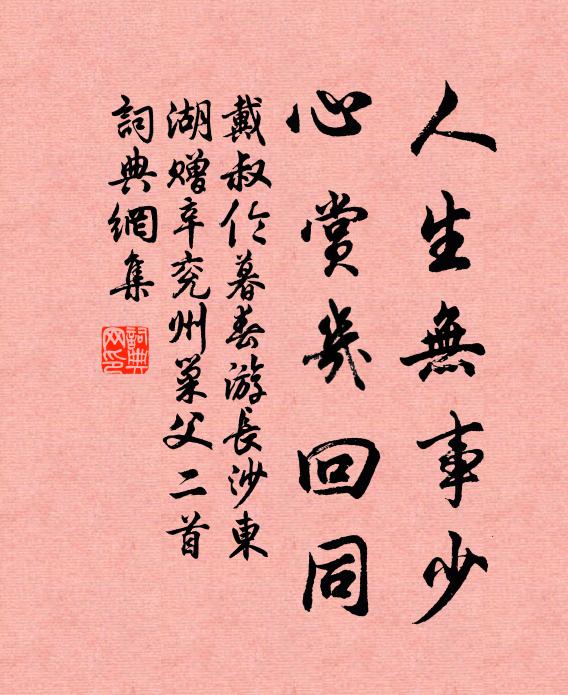 人生無事少
心賞幾回同
戴叔伦暮春游長沙東
湖赠辛兖州巢父二首
詞典網集
詞典网印